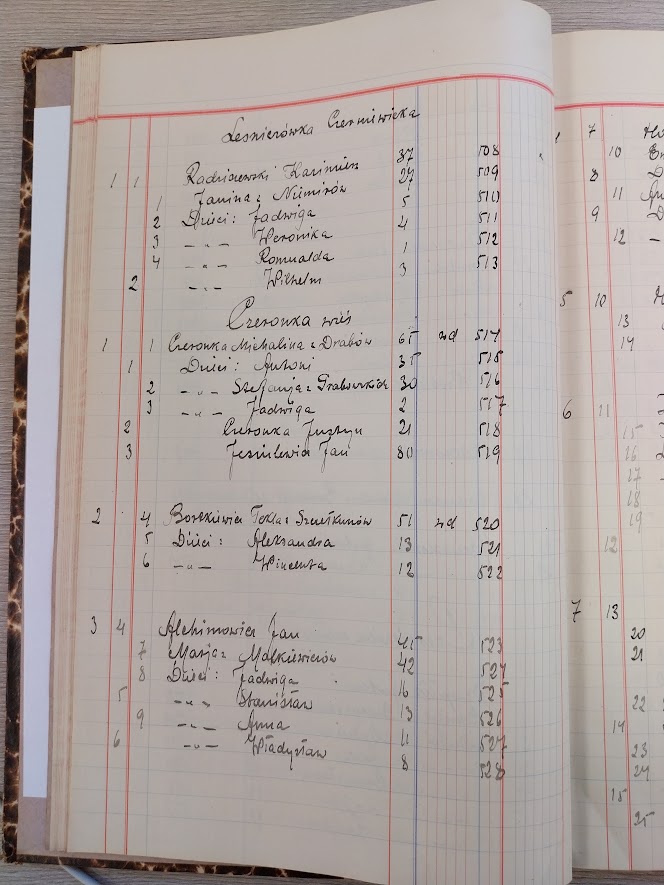 Leśnierówka Czerniwicka
1 1 Radziszewski Kazimierz 37 508
1 Janina z Niemirów 27 509
2 Dzieci: Jadwiga 5 510
3 -„- Weronika 4 511
4 -„- Romualda 1 512
2 -„- Wilhelm 3 513
Czeronka wieś
1 1 Czeronka Michalina z Drabów 65 wd 514
1 Dzieci: Antoni 35 515
2 -„- Stefanja z Grabowskich 30 516
3 -„- Jadwiga 2 517
2 Czeronka Justyn 21 518
3 Jeśmilewicz Jan 80 519
2 4 Bortkiewicz Tekla z Szczełkunów 51 wd 520
5 Dzieci: Aleksandra 13 521
6 -„- Wincenta 12 522
3 4 Alchimowicz Jan 45 523
7 Marja z Małkiewiczów 42 524
8 Dzieci: Jadwiga 16 525
5 -„- Stanisław 13 526
9 -„- Anna 11 527
6 -„- Władysław 8 528
7
10
8
11
9
12
5 10
13
14
6 11
15
16
17
18
19
12
7 13
20
21
22
14
23
24
15
25